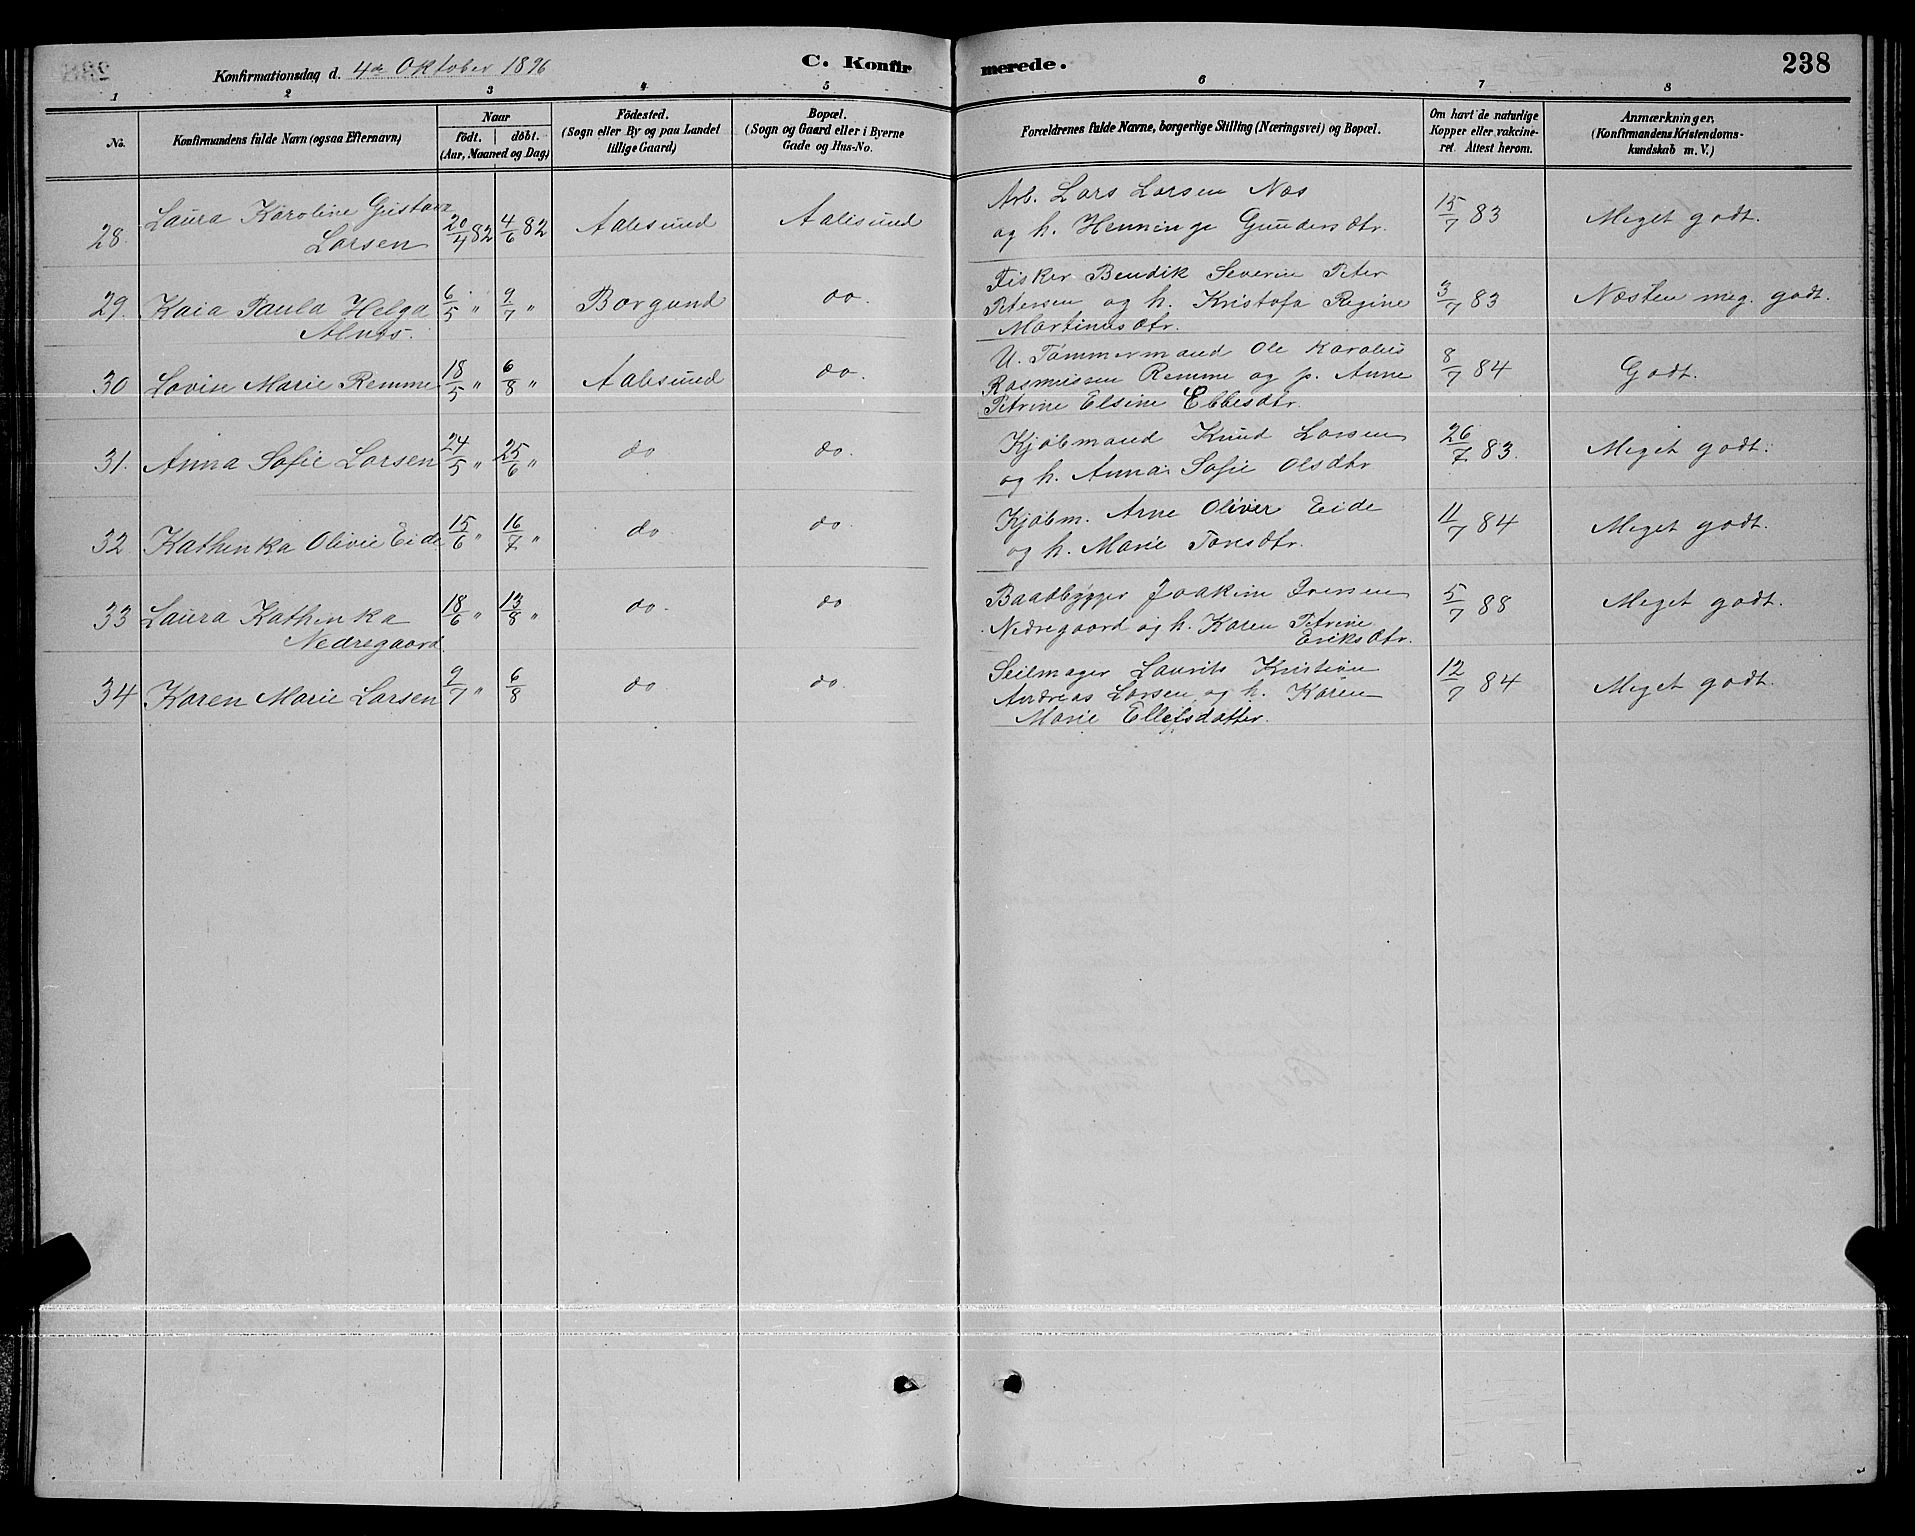 Konfirmationsdag d. 4de Oktober 1896
C. Konfirmerede.
238
1 2 3 4 5 6 7 8
No.
Konfirmandens fulde Navn (ogsaa Efternavn)
Naar
födt. döbt.
(Aar, Maaned og Dag)
Födested.
(Sogn eller By og paa Landet
tillige Gaard)
Bopæl.
(Sogn og Gaard eller i Byerne
Gade og Hus-No.
Forældrenes fulde Navne, borgerlige Stilling (Næringsvei) og Bopæl.
Om havt de naturlige
Kopper eller vakcine-
ret. Attest herom.
Anmærkninger.
(Konfirmandens Kristendoms-
kundskab m. V.)
28. Laura Karoline Gustava
Larsen 20/4 82 4/6 82 Aalesund Aalesund
Arb. Lars Larsen Næs
og h. Henninge Gundersdtr. 15/7 83 Meget godt.
29. Kaia Paula Helga
Alnæs. 6/5 " 9/7 " Borgund do.
Fisker Bendik Severin Peter
Petersen og h. Kristofa Regine
Martinusdtr. 3/7 83 Næsten meg. godt.
30 Lovise Marie Remme 18/5 " 6/8 " Aalesund do.
U. Tømmermand Ole Karolius
Rasmussen Remme og p. Anne
Petrine Elsine Ebbesdtr. 8/7 84 Godt.
31. Anna Sofie Larsen 24/5 " 25/6 " do do.
Kjøbmand Knud Larsen
og h. Anna Sofie Olsdtr 26/7 83. Meget godt.
32 Kathinka Olivie Eide 15/6 " 16/7 " do. do.
Kjøbm. Arne Oliver Eide
og h. Marie Tonsdtr. 11/7 84 Meget godt.
33 Laura Kathinka
Nedregaard 18/6 " 13/8 " do. do
Baadbygger Joakim Iversen
Nedregaard og h. Karen Petrine
Eriksdtr. 5/7 88 Meget godt.
34 Karen Marie Larsen 9/7 " 6/8 do do.
Seilmager Laurits Kristian
Andreas Larsen og h. Karen
Marie Ellefsdatter. 12/7 84 Meget godt.